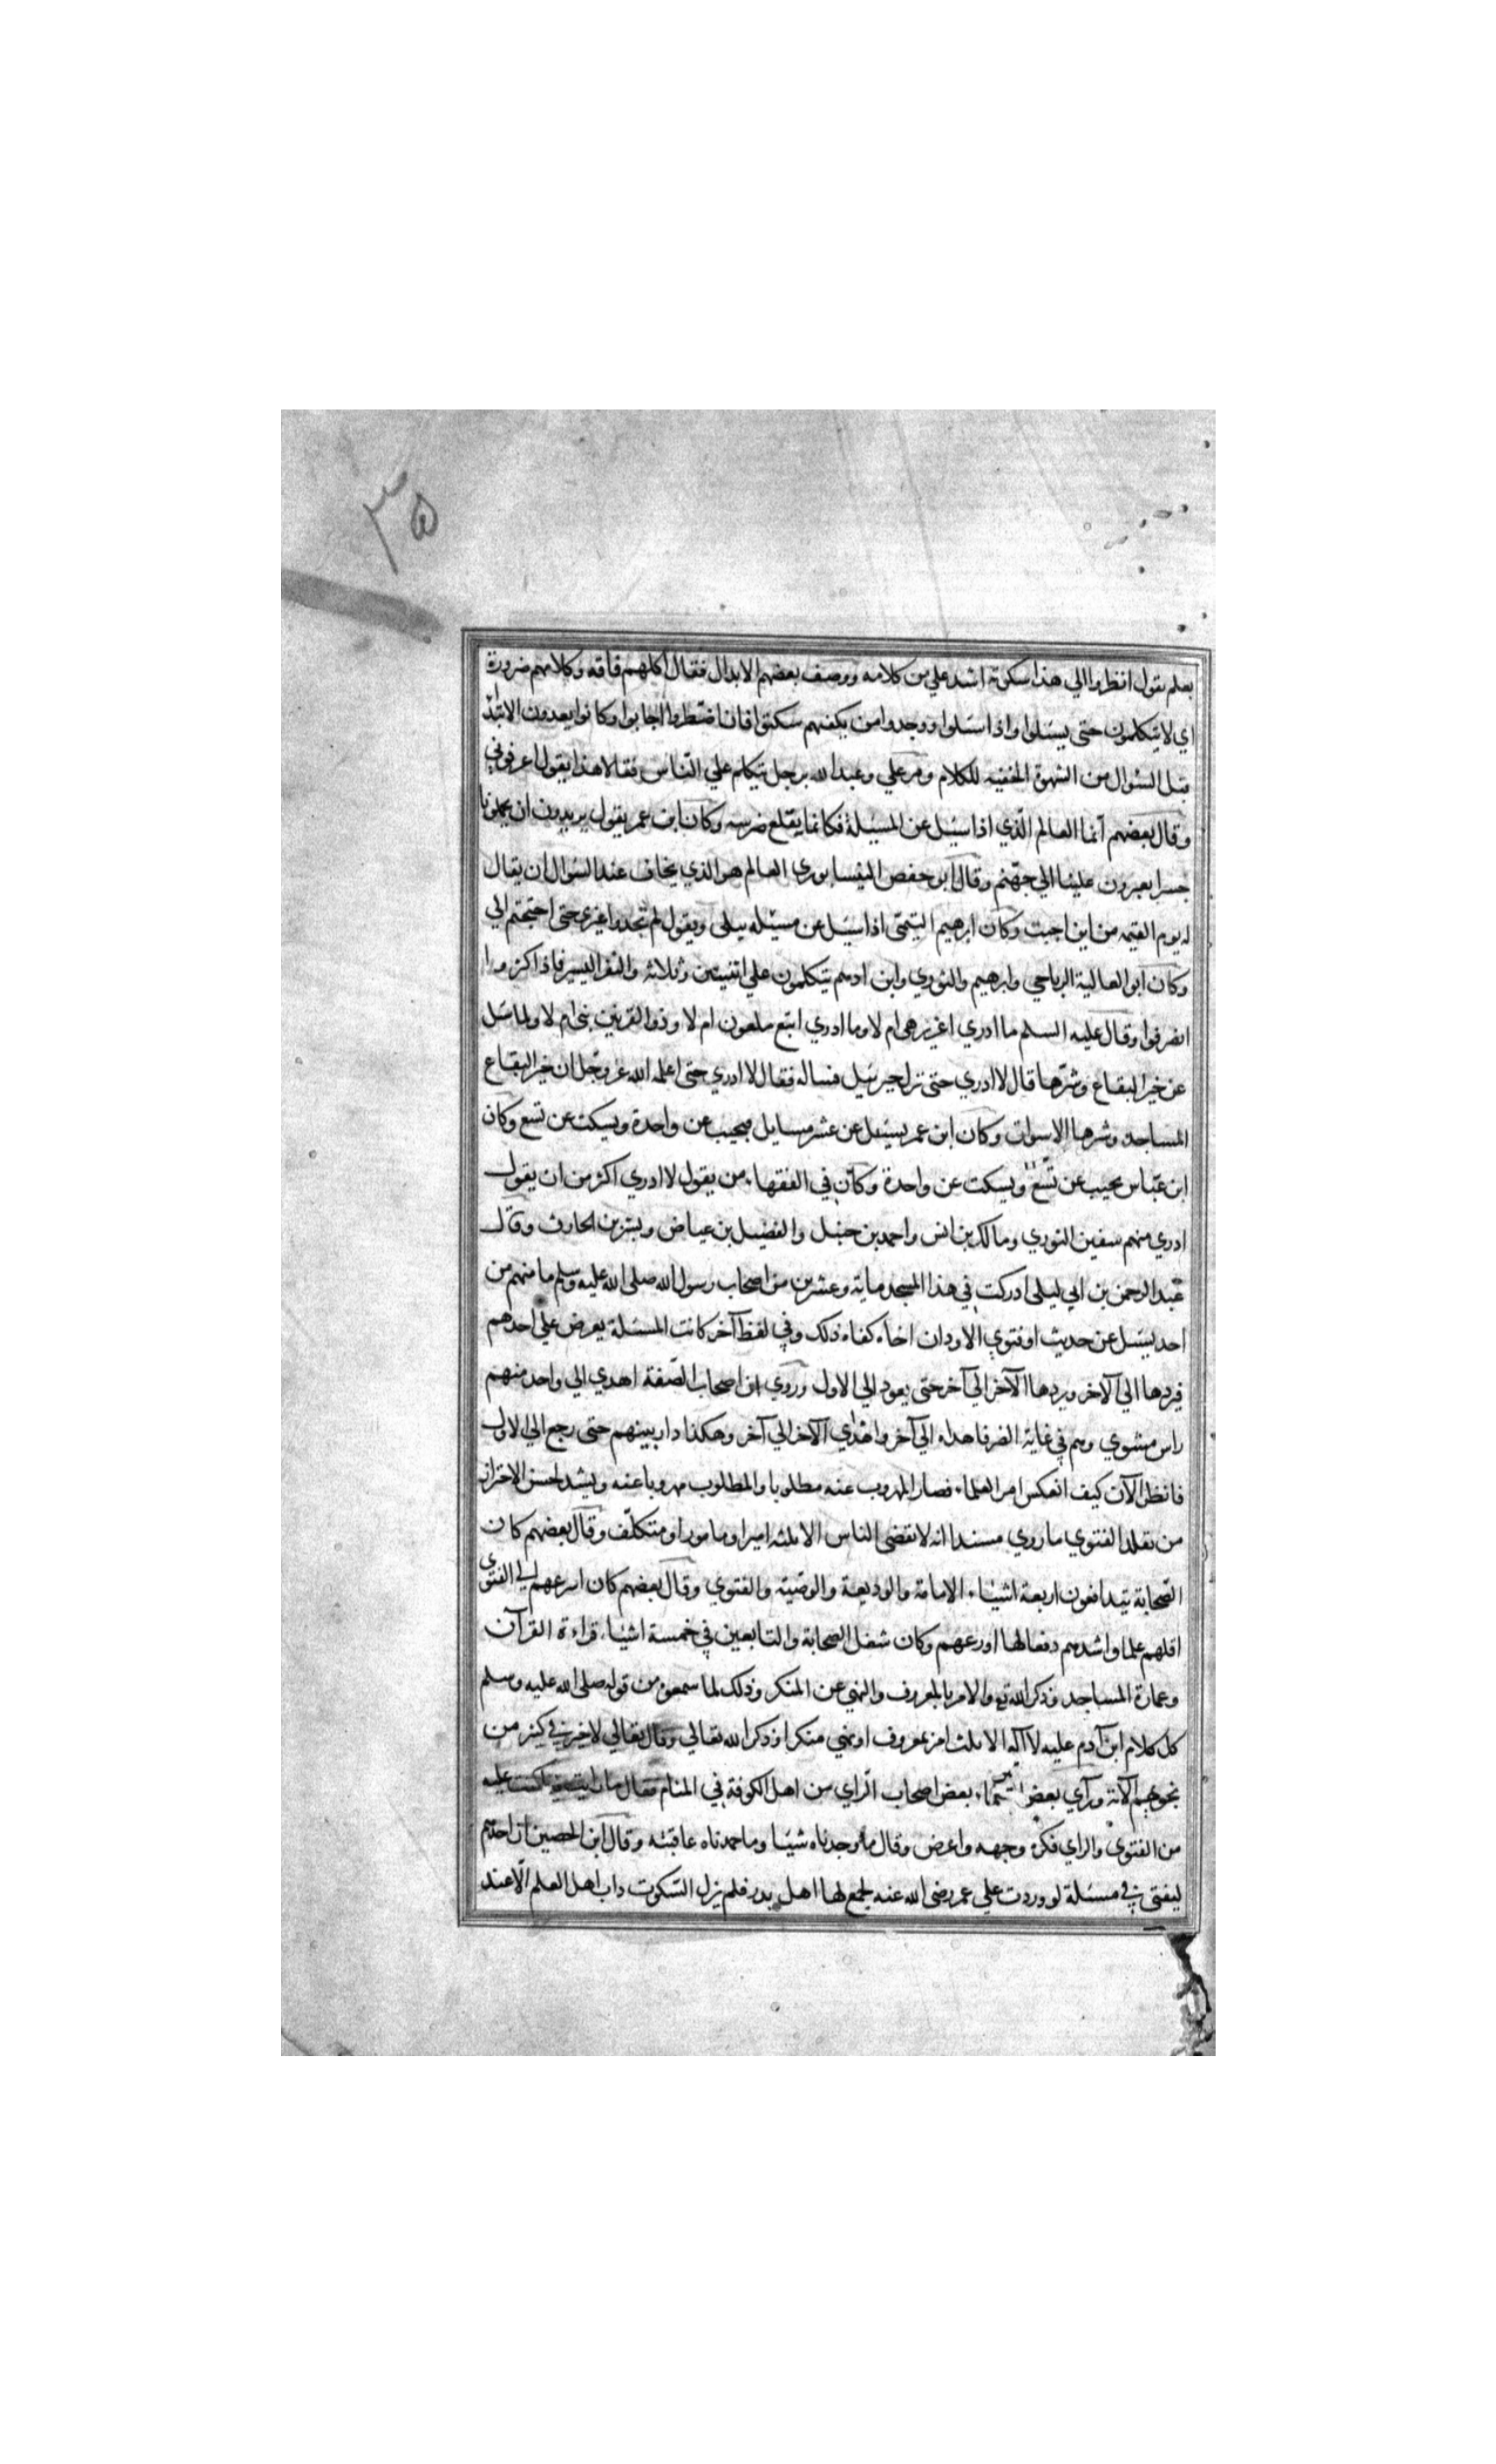 ٣٥
بعلم يقول انظروا الي هذا سكوته اشد علي من كلامه ووصف بعضهم الابدال فقال اكلهم فاقه وكلامهم ضرورة
اي لا يتكلمون حتى يسئلوا واذا سئلوا ووجدوا من يكفيهم سكتوا فان اضطروا اجابوا وكانوا يعدون الابتدا
قبل السؤال من الشهوة الخفيه للكلام ومر علي وعبد الله برجل يتكلم علي الناس فقالا هذا يقول اعرفوني
وقال بعضهم انما العالم الذي اذا سئل عن المسئلة فكانما يقلع ضرسه وكان ابن عمر يقول يريدون ان يجعلونا
جسرا يعبرون علينا الي جهنم وقال ابو حفص النيسابوري العالم هو الذي يخاف عند السؤال ان يقال
له يوم القيمه من اين اجبت وكان ابرهيم التيمى اذا سئل عن مسئله يبكى ويقول لم تجدوا غيرى حتى احتجتم الي
وكان ابو العالية الرياحي وابرهيم والثوري وابن ادهم يتكلمون علي اثنين وثلاثه والنفر اليسير فاذا كثروا
انصرفوا وقال عليه السلم ما ادري اعزير هى ام لا وما ادري اتبع ملعون ام لا وذو القرنين نبى ام لا ولما سئل
عن خير البقاع وشرها قال لا ادري حتى نزل جبرئيل فساله فقال لا ادري حتى اعلمه الله عز وجل ان خير البقاع
المساجد وشرها الاسواق وكان ابن عمر يسئل عن عشر مسايل فيجيب عن واحدة ويسكت عن تسع وكان
ابن عباس يجيب عن تسع ويسكت عن واحدة وكان في الفقهاء من يقول لا ادري اكثر من ان يقول
ادري منهم سفين الثوري ومالك بن انس واحمد بن حنبل والفضيل بن عياض وبشر بن الحارث وقال
عبد الرحمن بن ابي ليلى ادركت في هذا المسجد ماية وعشرين من اصحاب رسول الله صلى الله عليه وسلم ما منهم من
احد يسئل عن حديث او فتوي الا ود ان اخاه كفاه ذلك وفي لفظ آخر كانت المسئلة يعرض علي احدهم
فيردها الي الآخر ويردها الآخر الي آخر حتى يعود الي الاول وروي ان اصحاب الصفة اهدي الي واحد منهم
راس مشوي وهم في غاية الضر فاهداه الي آخر واهدي الآخر الي آخر وهكذا دار بينهم حتى رجع الي الاول
فانظر الآن كيف انعكس امر العلماء فصار المهروب عنه مطلوبا والمطلوب مهروبا عنه ويشهد لحسن الاحتراز
من تقلد الفتوي ما روي مسندا انه لا يقضى الناس الا ثلثه امير او مامور او متكلف وقال بعضهم كان
الصحابة يتدافعون اربعة اشياء الامامة والوديعة والوصية والفتوي وقال بعضهم كان اسرعهم الي الفتوى
اقلهم علما واشدهم دفعا لها اورعهم وكان شغل الصحابة والتابعين في خمسة اشياء قراءة القرآن
وعمارة المساجد وذكر الله تع والامر بالمعروف والنهي عن المنكر وذلك لما سمعوه من قوله صلى الله عليه وسلم
كل كلام ابن آدم عليه لا له الا ثلث امر بمعروف او نهي منكر او ذكر الله تعالي وقال تعالي لا خير في كثير من
نجويهم الآية ورآي بعض بعض اصحاب الراي من اهل الكوفة في المنام فقال ما رايت فيما كنت عليه
من الفتوي والراي فكره وجهه واعرض وقال ما وجدناه شيئا وما حمدناه عاقبته وقال ابن الحصين ان احدهم
ليفتى في مسئلة لو وردت علي عمر رضى الله عنه لجمع لها اهل بدر فلم يزل السكوت داب اهل العلم الا عند